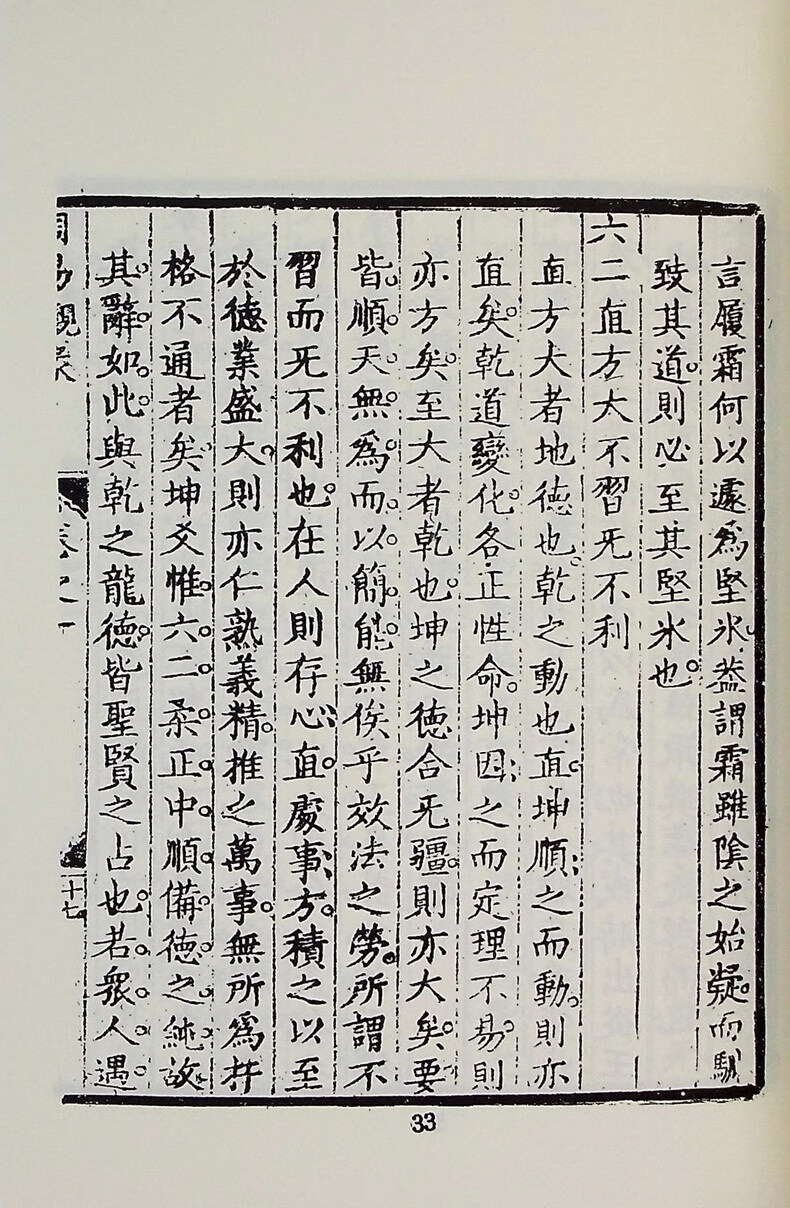 言履霜何以遽爲堅氷蓋謂霜雖陰之始凝而馴
致其道則必至其堅氷也
六二直方大不習旡不利
直方大者地德也乾之動也直坤順之而動則亦
直矣乾道變化各正性命坤因之而定理不易則
亦方矣至大者乾也坤之德合旡疆則亦大矣要
皆順天無爲而以簡能無俟乎效法之勞所謂不
習而旡不利也在人則存心直處事方積之以至
於德業盛大則亦仁熟義精推之萬事無所爲扞
格不通者矣坤爻惟六二柔正中順備德之純故
其辭如此與乾之龍德皆聖賢之占也若衆人遇
周易觀彖
卷之一
十七
33